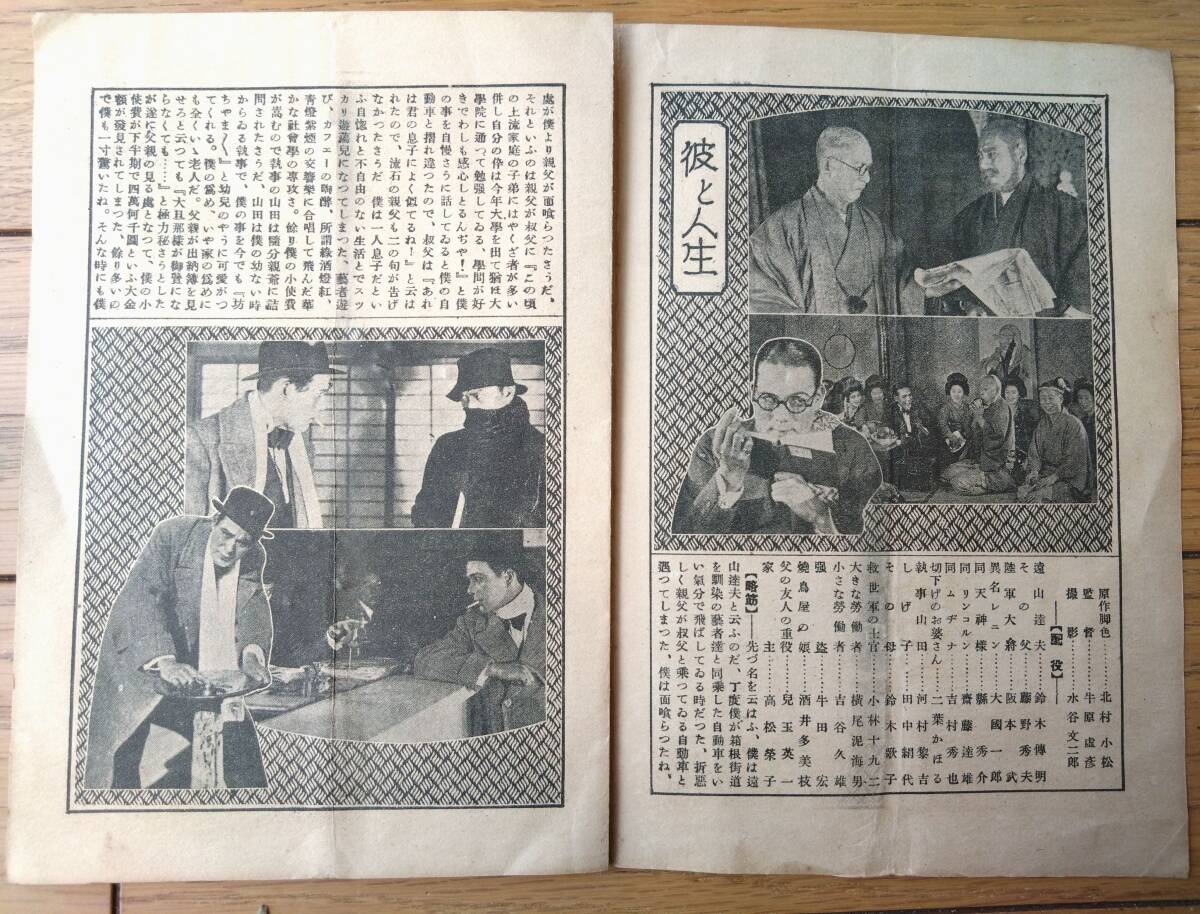 彼と人生
原作脚色……北村小松
監督……牛原虚彦
撮影……水谷文二郎
―【配役】―
遠山達夫……鈴木傳明
その父……藤野秀夫
陸軍大將……阪本武
異名レニン……大國一郎
同天神様……縣秀介
同リンコルン……齋藤達雄
同ムヂナ……吉村秀也
切下げのお婆さん……二葉かほる
執事山田……河村黎吉
しげ子……田中絹代
その母……鈴木歌子
救世軍の士官……小林十九二
大きな勞働者……横尾泥海男
小さな勞働者……吉谷久雄
强盗……牛田宏
燒鳥屋の娘……酒井多美枝
父の友人の重役……兒玉英一
家主……高松榮子
【略筋】――先づ名を云はふ、僕は遠
山達夫と云ふのだ、丁度僕が箱根街道
を馴染の藝者達と同乘した自動車をい
い氣分で飛ばしてゐる時だつた、折惡
しく親父が叔父と乘つてゐる自動車と
遇つてしまつた、僕は面喰らつたね、
處が僕より親父が面喰らつたさうだ、
それといふのは親父が叔父に『この頃
の上流家庭の子弟にはやくざ者が多い
併し自分の伜は今年大學を出て猶ほ大
學院に通つて勉强してゐる、學問が好
きでわしも感心しとるんぢや！』と僕
の事を自慢さうに話してゐると僕の自
動車と摺れ違つたので、叔父は『あれ
は君の息子によく似てるね！』と云は
れたので、流石の親父も二の句が告げ
なかつたさうだ　僕は一人息子だとい
ふ自惚れと不自由のない生活とでスッ
カリ遊蕩兒になつてしまつた、藝者遊
び、カフェーの陶醉、所謂綠酒燈紅、
靑燈紫煙の交響樂に合唱して飛んだ華
かな社會學の專攻さ。餘り僕の小使費
が嵩むので執事の山田は隨分親爺に詰
問されたさうだ、山田は僕の幼ない時
からゐる執事で、僕の事を今でも『坊
ちやま〳〵』と幼兒のやうに可愛がつ
てくれる。僕の爲め、いや家の爲めに
も全くいゝ老人だ。父親が出納簿を見
せろと云つても『大旦那樣が御覽にな
らなくても……』と極力秘さうとした
が遂に父親の見る處となつて、僕の小
使費が下半期で四萬何千圓といふ大金
額が發見されてしまつた、餘り多いの
で僕も一寸驚いたね。そんな時にも僕